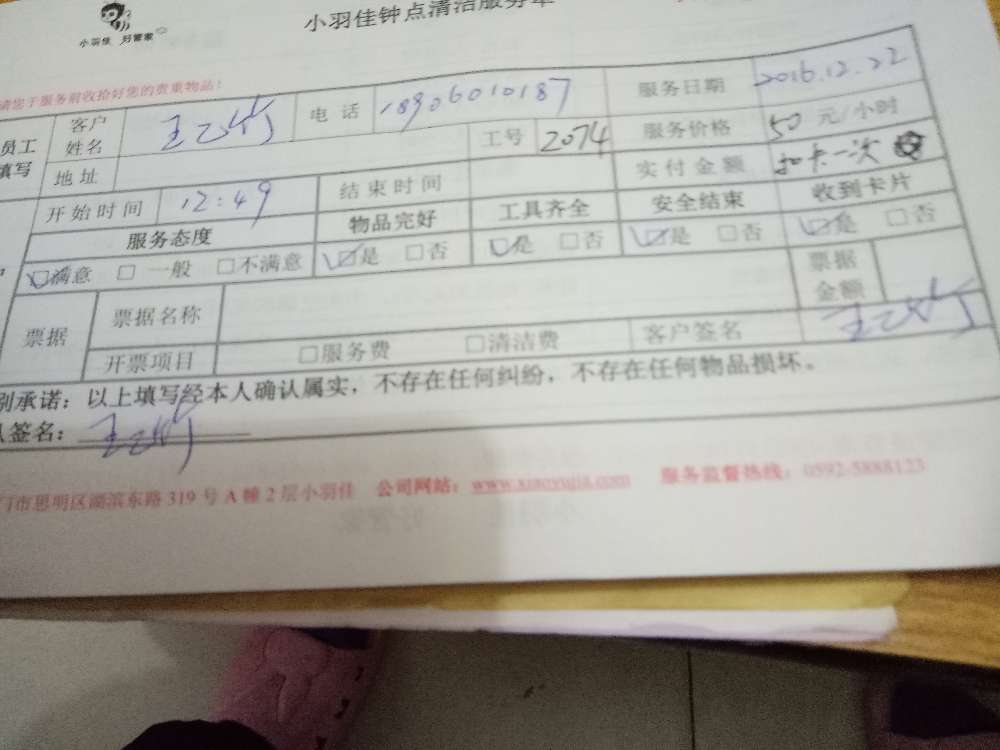 小羽佳 好管家
小羽佳钟点清洁服务单
请您于服务前收拾好您的贵重物品！
员工填写 客户姓名 电话 18906010187 服务日期 2016.12.22
地址 工号 2074 服务价格 50 元/小时
开始时间 12:49 结束时间 实付金额 扣卡一次
服务态度 物品完好 工具齐全 安全结束 收到卡片
☑满意 □ 一般 □不满意 ☑是 □否 ☑是 □否 ☑是 □否 ☑是 □否
票据 票据名称 票据金额
开票项目 □服务费 □清洁费 客户签名
别承诺：以上填写经本人确认属实，不存在任何纠纷，不存在任何物品损坏。
签名：
门市思明区湖滨东路 319 号 A 幢 2 层小羽佳 公司网站：www.xiaoyujia.com 服务监督热线：0592-5888123